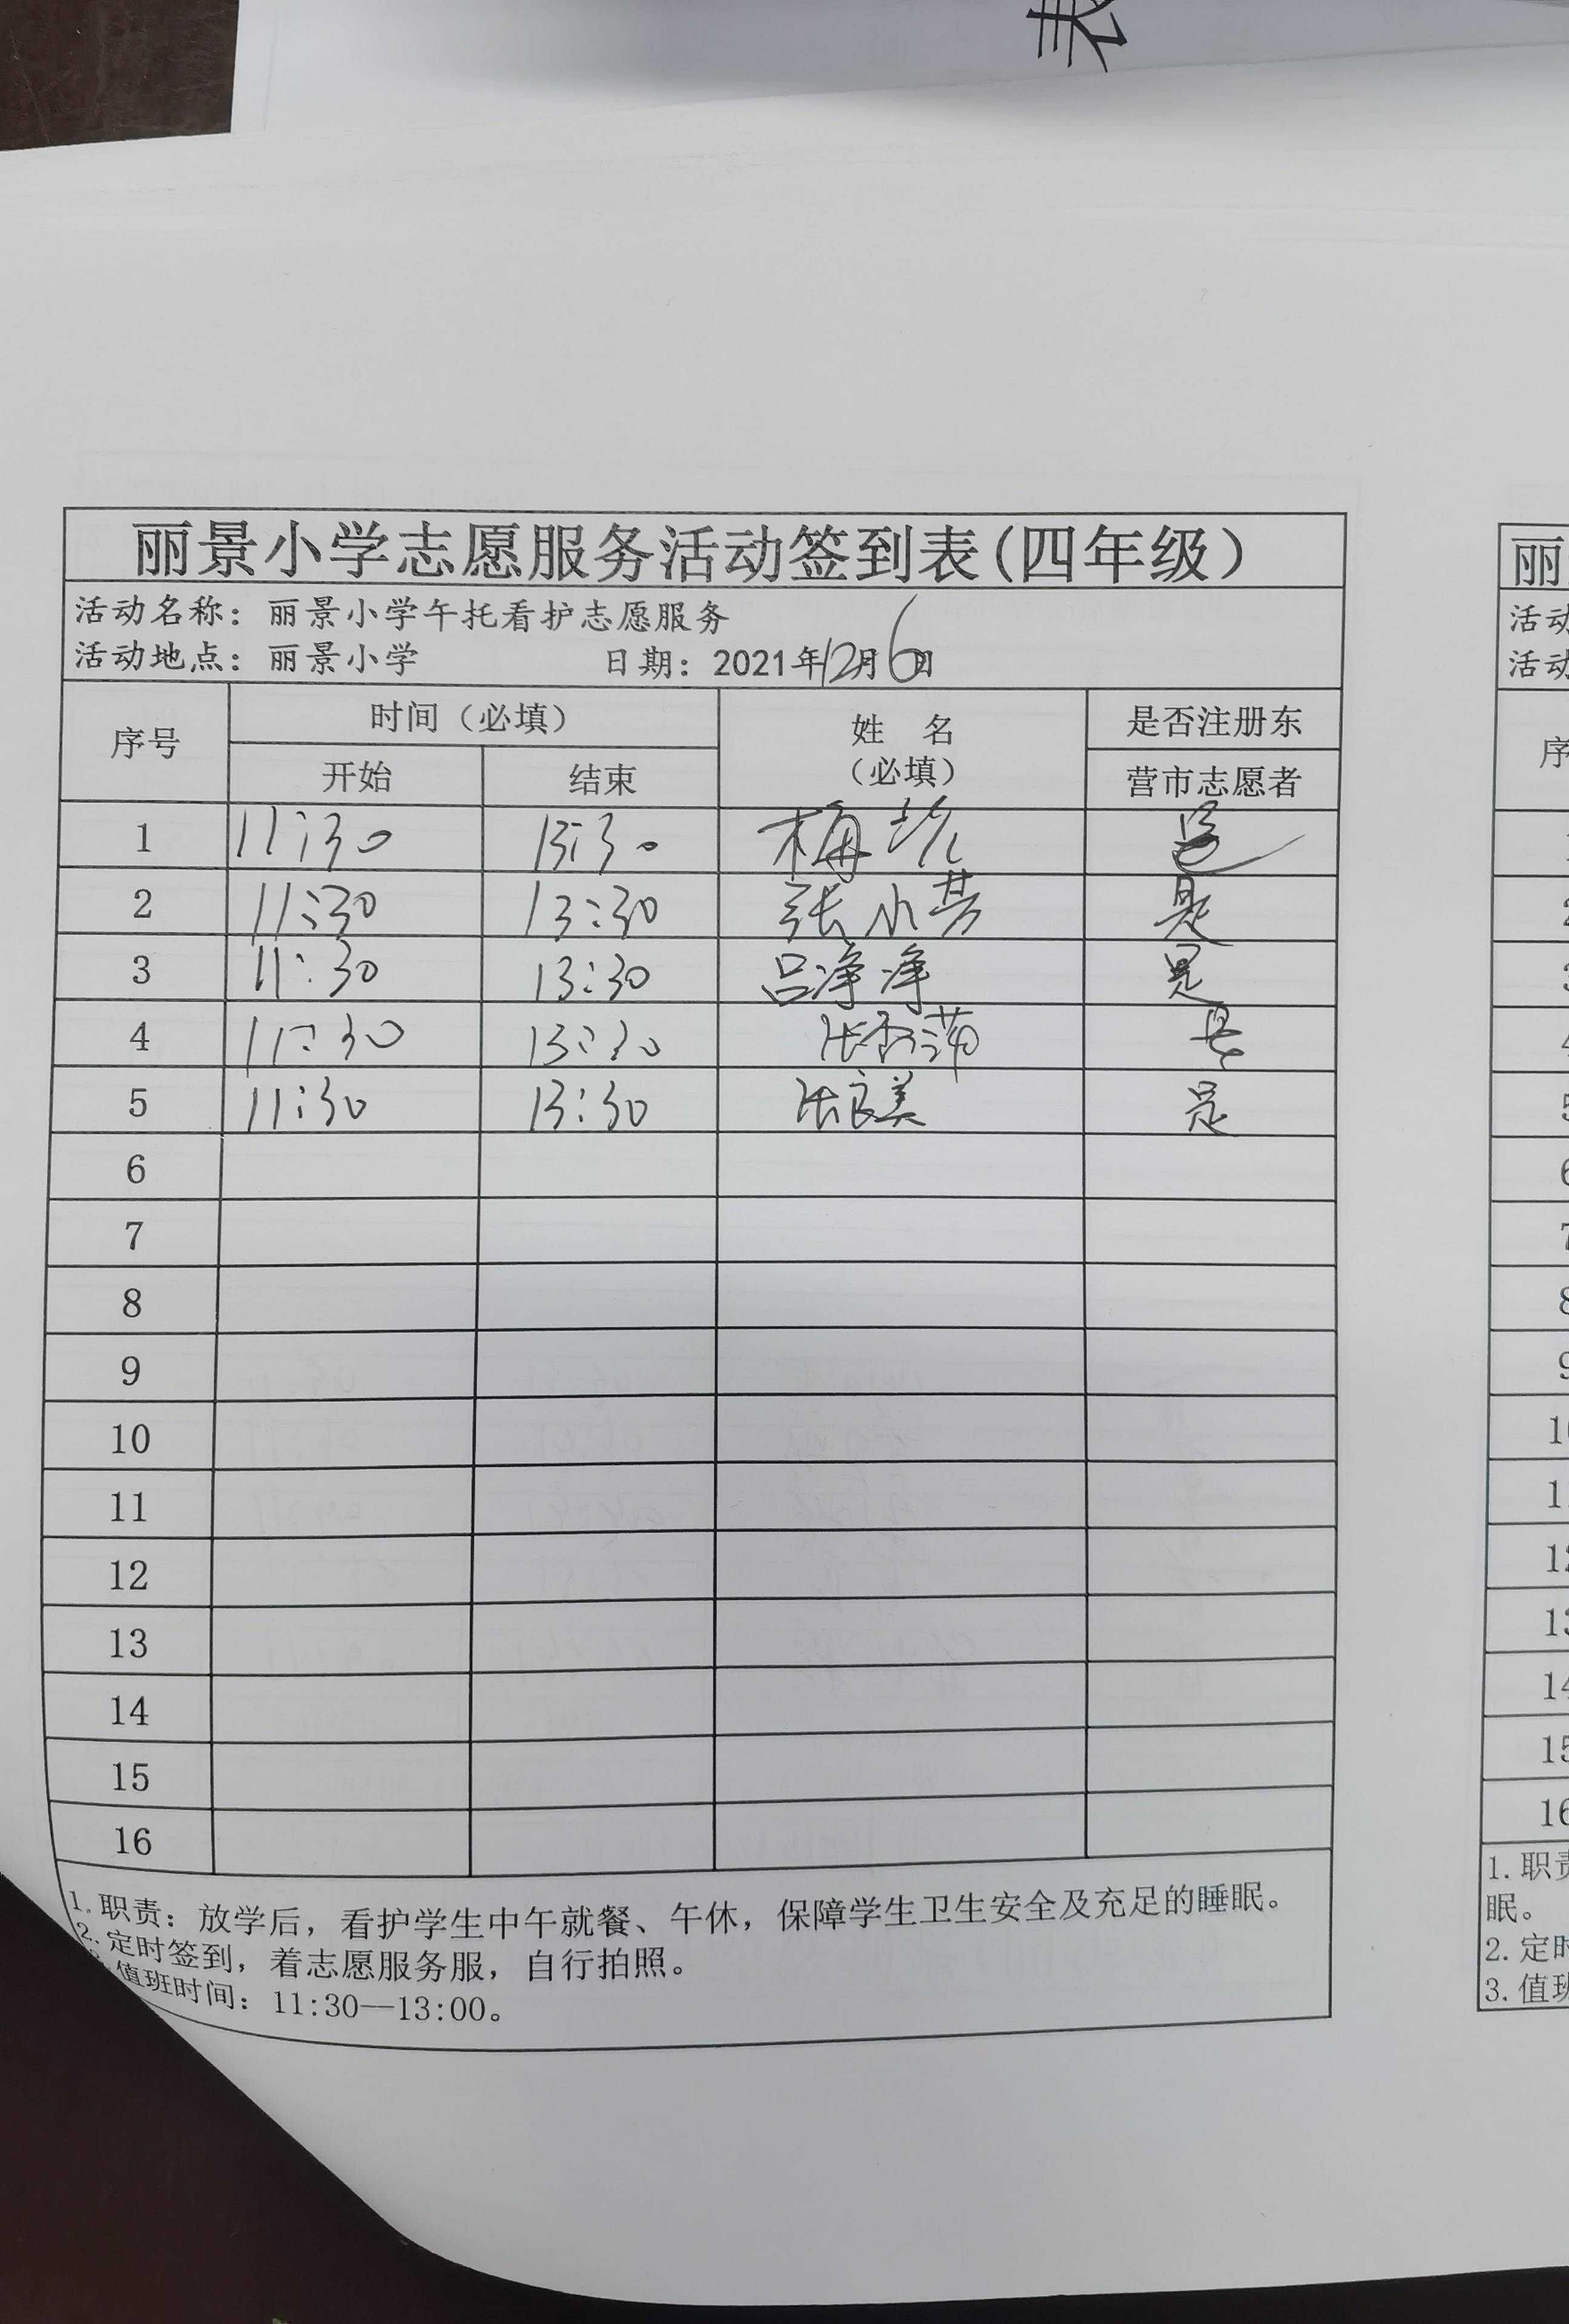 表
丽景小学志愿服务活动签到表(四年级)
活动名称：丽景小学午托看护志愿服务
活动地点：丽景小学 日期：2021年12月6日
序号 时间（必填） 姓 名 （必填） 是否注册东
开始 结束 营市志愿者
1 11:30 13:30 梅 是
2 11:30 13:30 张小芸 是
3 11:30 13:30 吕净净 是
4 11:30 13:30 张香蒲 是
5 11:30 13:30 张良美 是
6
7
8
9
10
11
12
13
14
15
16
1.职责：放学后，看护学生中午就餐、午休，保障学生卫生安全及充足的睡眠。
2.定时签到，着志愿服务服，自行拍照。
值班时间：11:30—13:00。
丽
活动
活动
序
1
2
3
4
5
6
7
8
9
10
11
12
13
14
15
16
1.职责
眠。
2.定时
3.值班